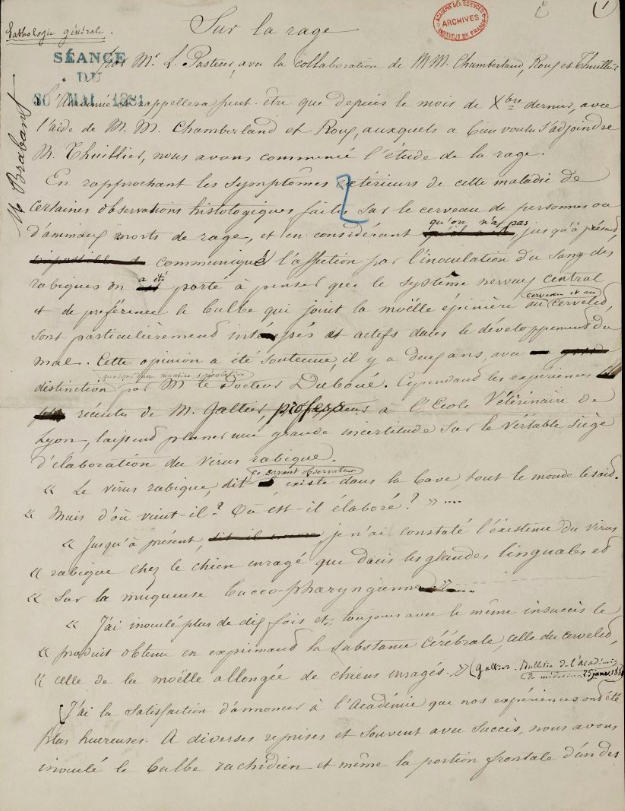 Pathologie générale.
Sur la rage
(1)
ARCHIVES
SÉANCE
DU
30 MAI 1881
par Mr. L. Pasteur, avec la collaboration de MM. Chamberland, Roux et Thuillier
L'Académie se rappellera peut-être que depuis le mois de Xbre dernier, avec
l'aide de M. M. Chamberland et Roux, auxquels a bien voulu s'adjoindre
M. Thuillier, nous avons commencé l'étude de la rage.
En rapprochant les symptômes extérieurs de cette maladie de
certaines observations histologiques faites sur le cerveau de personnes ou
d'animaux morts de rage, et en considérant qu'on n'a pas jusqu'à présent
communiqué l'affection par l'inoculation du sang des
rabiques on a été porté à penser que le système nerveux central
et de préférence le bulbe qui joint la moëlle épinière au cerveau et au cervelet,
sont particulièrement intéressés et actifs dans le développement du
mal. Cette opinion a été soutenue, il y a deux ans, avec
distinction par M. le Docteur Duboué. Cependant les expériences
récentes de M. Galtier professeur à l'Ecole Vétérinaire de
Lyon, laissent planer une grande incertitude sur le véritable siège
d'élaboration du virus rabique.
« Le virus rabique, dit ce savant observateur existe dans la bave, tout le monde le sait.
« Mais d'où vient-il ? Où est-il élaboré ? » ....
« Jusqu'à présent, je n'ai constaté l'existence du virus
« rabique chez le chien enragé que dans les glandes linguales et
« sur la muqueuse bucco-pharyngienne » ....
« J'ai inoculé plus de dix fois et, toujours avec le même insuccès le
« produit obtenu en exprimant la substance cérébrale, celle du cervelet,
« celle de la moëlle allongée de chiens enragés. » (Galtier. Bulletin de l'Académie de médecine 25 janvier 1881)
J'ai la satisfaction d'annoncer à l'Académie que nos expériences ont été
plus heureuses. A diverses reprises et souvent avec succès, nous avons
inoculé le bulbe rachidien et même la portion frontale d'un des